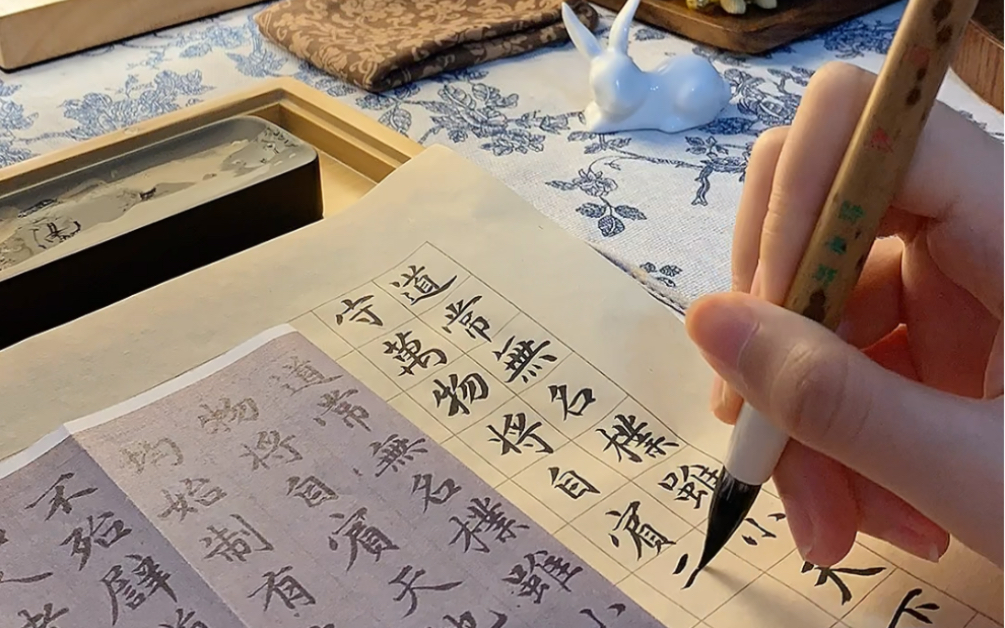 道常無名樸雖小天下
守萬物将自賓
道常無名樸雖小
物将自賓天地
均始制有
不殆譬